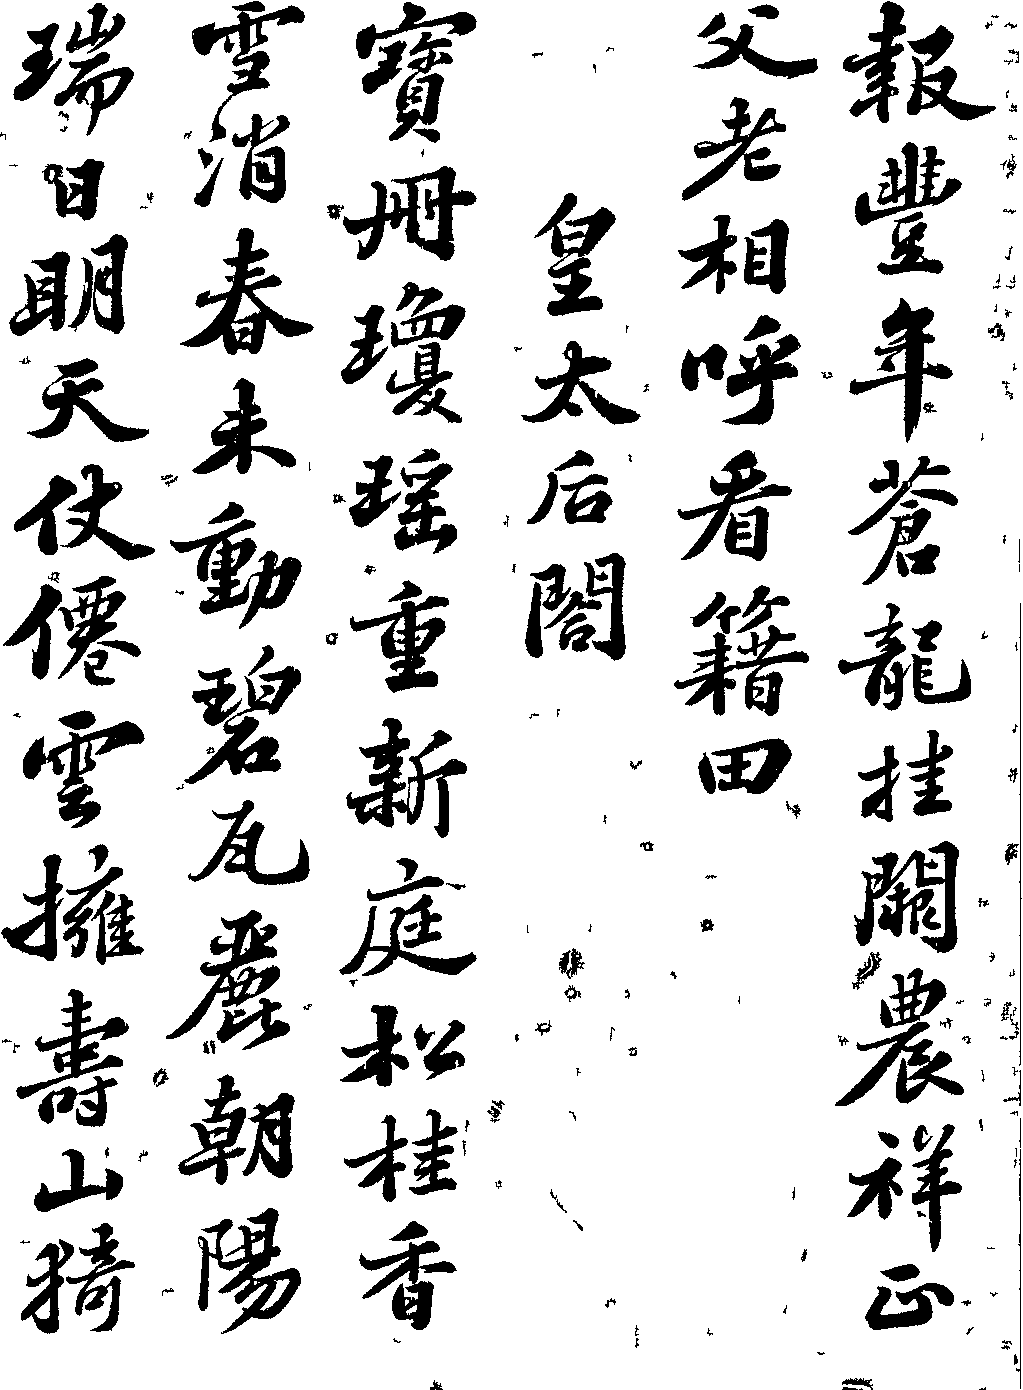 報豐年蒼龍挂闕農祥正
父老相呼看籍田
皇太后閤
寶冊瓊瑶重新庭松桂香
雪消春未動碧瓦麗朝陽
瑞日明天仗僊雲擁壽山猗